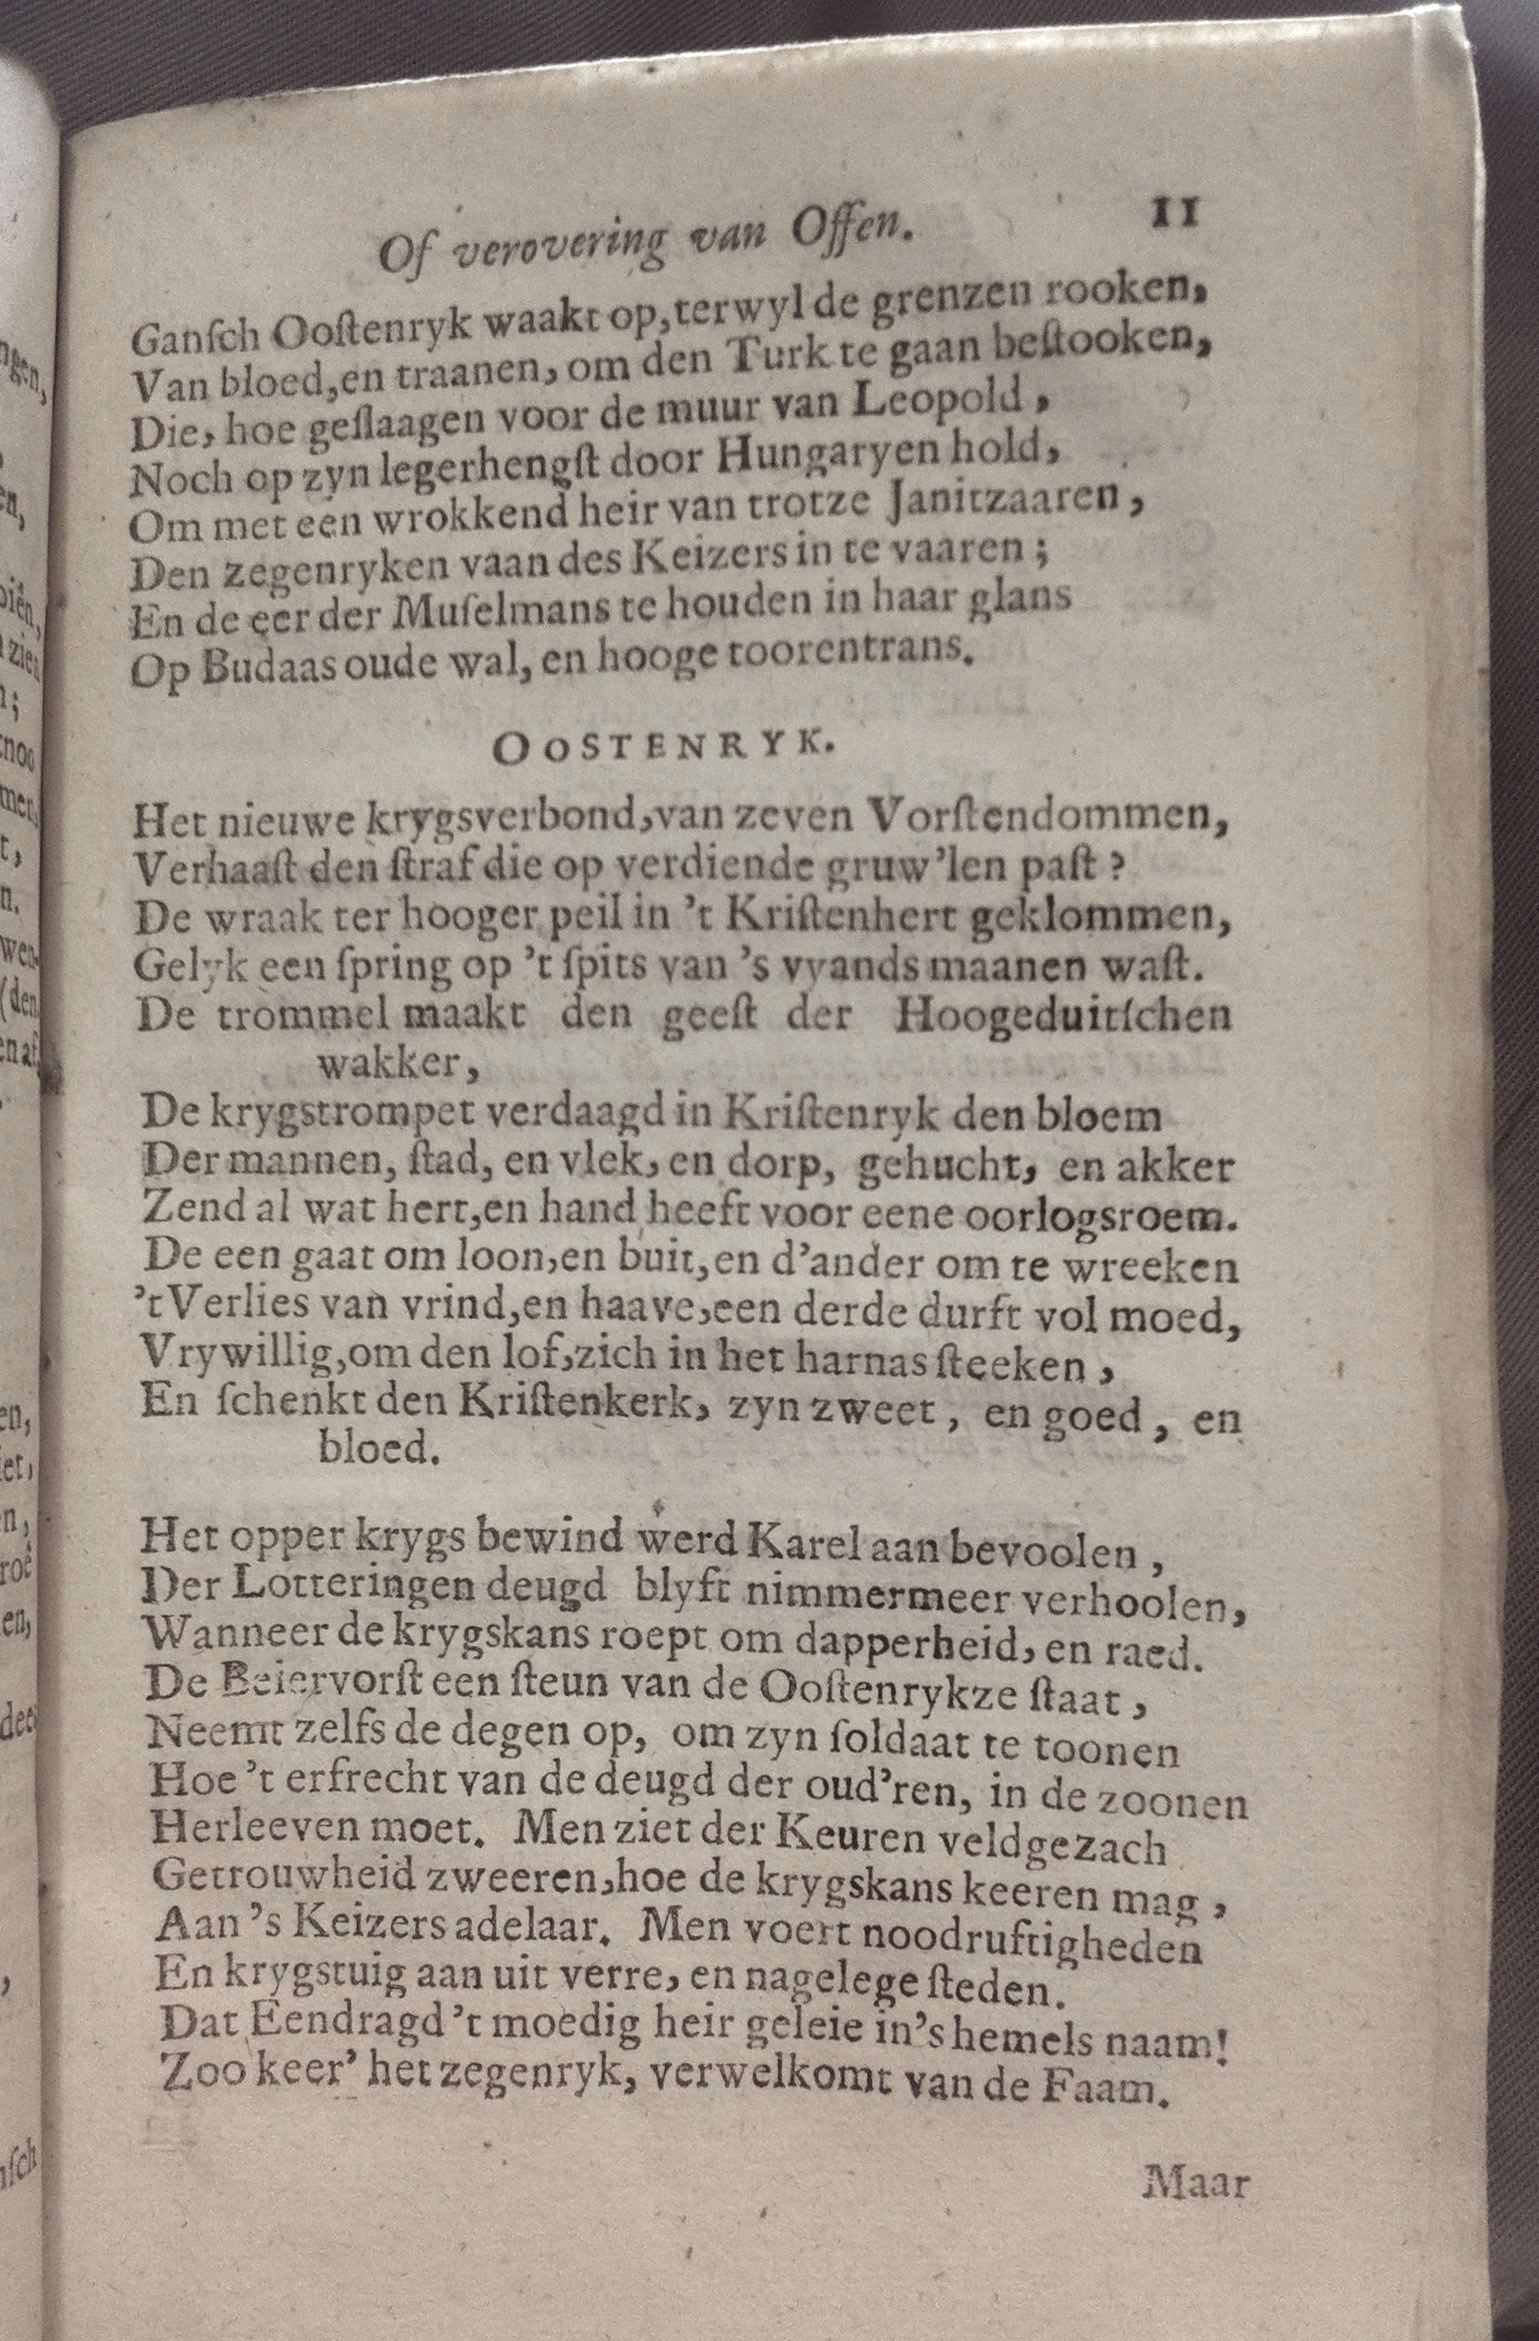 Of verovering van Offen. 11
Ganſch Ooſtenryk waakt op, terwyl de grenzen rooken,
Van bloed, en traanen, om den Turk te gaan beſtooken,
Die, hoe geſlaagen voor de muur van Leopold,
Noch op zyn legerhengſt door Hungaryen hold,
Om met een wrokkend heir van trotze Janitzaaren,
Den zegenryken vaan des Keizers in te vaaren;
En de eer der Muſelmans te houden in haar glans
Op Budaas oude wal, en hooge toorentrans.
OOSTENRYK.
Het nieuwe krygsverbond, van zeven Vorſtendommen,
Verhaaſt den ſtraf die op verdiende gruw'len paſt?
De wraak ter hooger peil in 't Kriſtenhert geklommen,
Gelyk een ſpring op 't ſpits van 's vyands maanen waſt.
De trommel maakt den geeſt der Hoogeduitſchen
wakker,
De krygstrompet verdaagd in Kriſtenryk den bloem
Der mannen, ſtad, en vlek, en dorp, gehucht, en akker
Zend al wat hert, en hand heeft voor eene oorlogsroem.
De een gaat om loon, en buit, en d'ander om te wreeken
't Verlies van vrind, en haave, een derde durft vol moed,
Vrywillig, om den lof, zich in het harnas ſteeken,
En ſchenkt den Kriſtenkerk, zyn zweet, en goed, en
bloed.
Het opper krygs bewind werd Karel aan bevoolen,
Der Lotteringen deugd blyft nimmermeer verhoolen,
Wanneer de krygskans roept om dapperheid, en raed.
De Beiervorſt een ſteun van de Ooſtenrykze ſtaat,
Neemt zelfs de degen op, om zyn ſoldaat te toonen
Hoe 't erfrecht van de deugd der oud'ren, in de zoonen
Herleeven moet. Men ziet der Keuren veldgezach
Getrouwheid zweeren, hoe de krygskans keeren mag,
Aan 's Keizers adelaar. Men voert noodruftigheden
En krygstuig aan uit verre, en nagelege ſteden.
Dat Eendragd 't moedig heir geleie in 's hemels naam!
Zoo keer' het zegenryk, verwelkomt van de Faam.
Maar